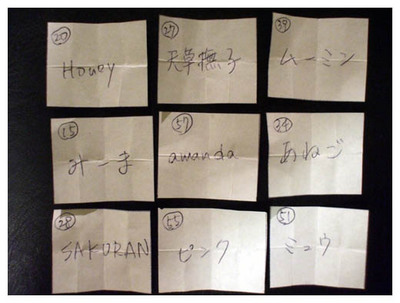 20
Honey
27
天草撫子
39
ムーミン
15
みーま
57
awanda
34
あねご
28
SAKURAN
55
ピンク
51
ミュウ